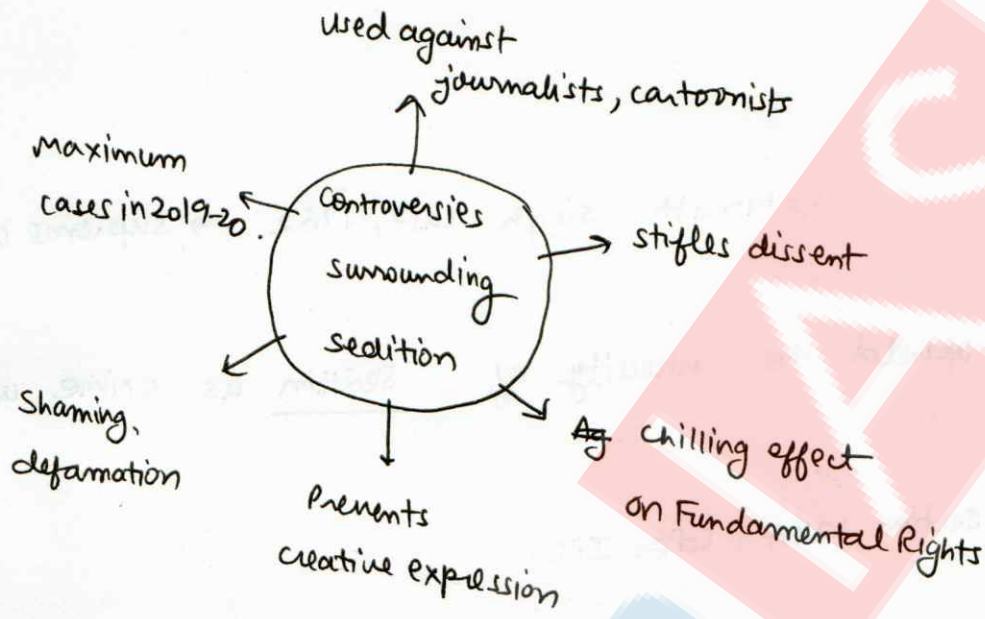 used against
journalists, cartoonists
Maximum
cases in 2019-20.
controversies
surrounding
sedition
stifles dissent
Shaming,
defamation
Ag chilling effect
on Fundamental Rights
Prevents
creative expression
IAC